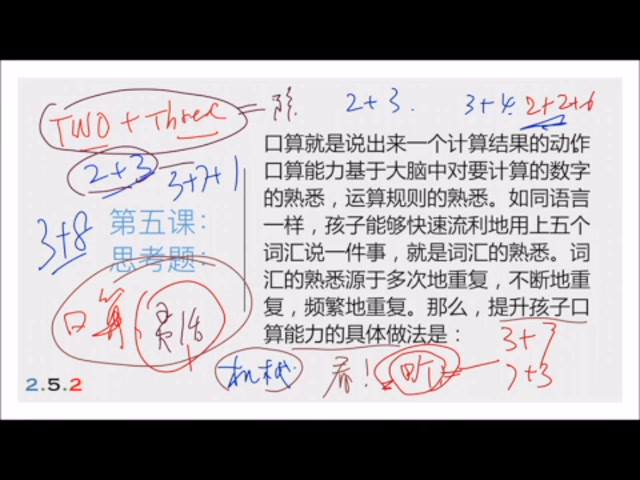 2+3. 3+4. 2+2+6
TWO + Three =
口算就是说出来一个计算结果的动作
口算能力基于大脑中对要计算的数字
的熟悉，运算规则的熟悉。如同语言
一样，孩子能够快速流利地用上五个
词汇说一件事，就是词汇的熟悉。词
汇的熟悉源于多次地重复，不断地重
复，频繁地重复。那么，提升孩子口
算能力的具体做法是：
2+3
3+7+1
3+8
第五课：
思考题：
口算：灵活
机械 看！ 听
3+7
7+3
2.5.2